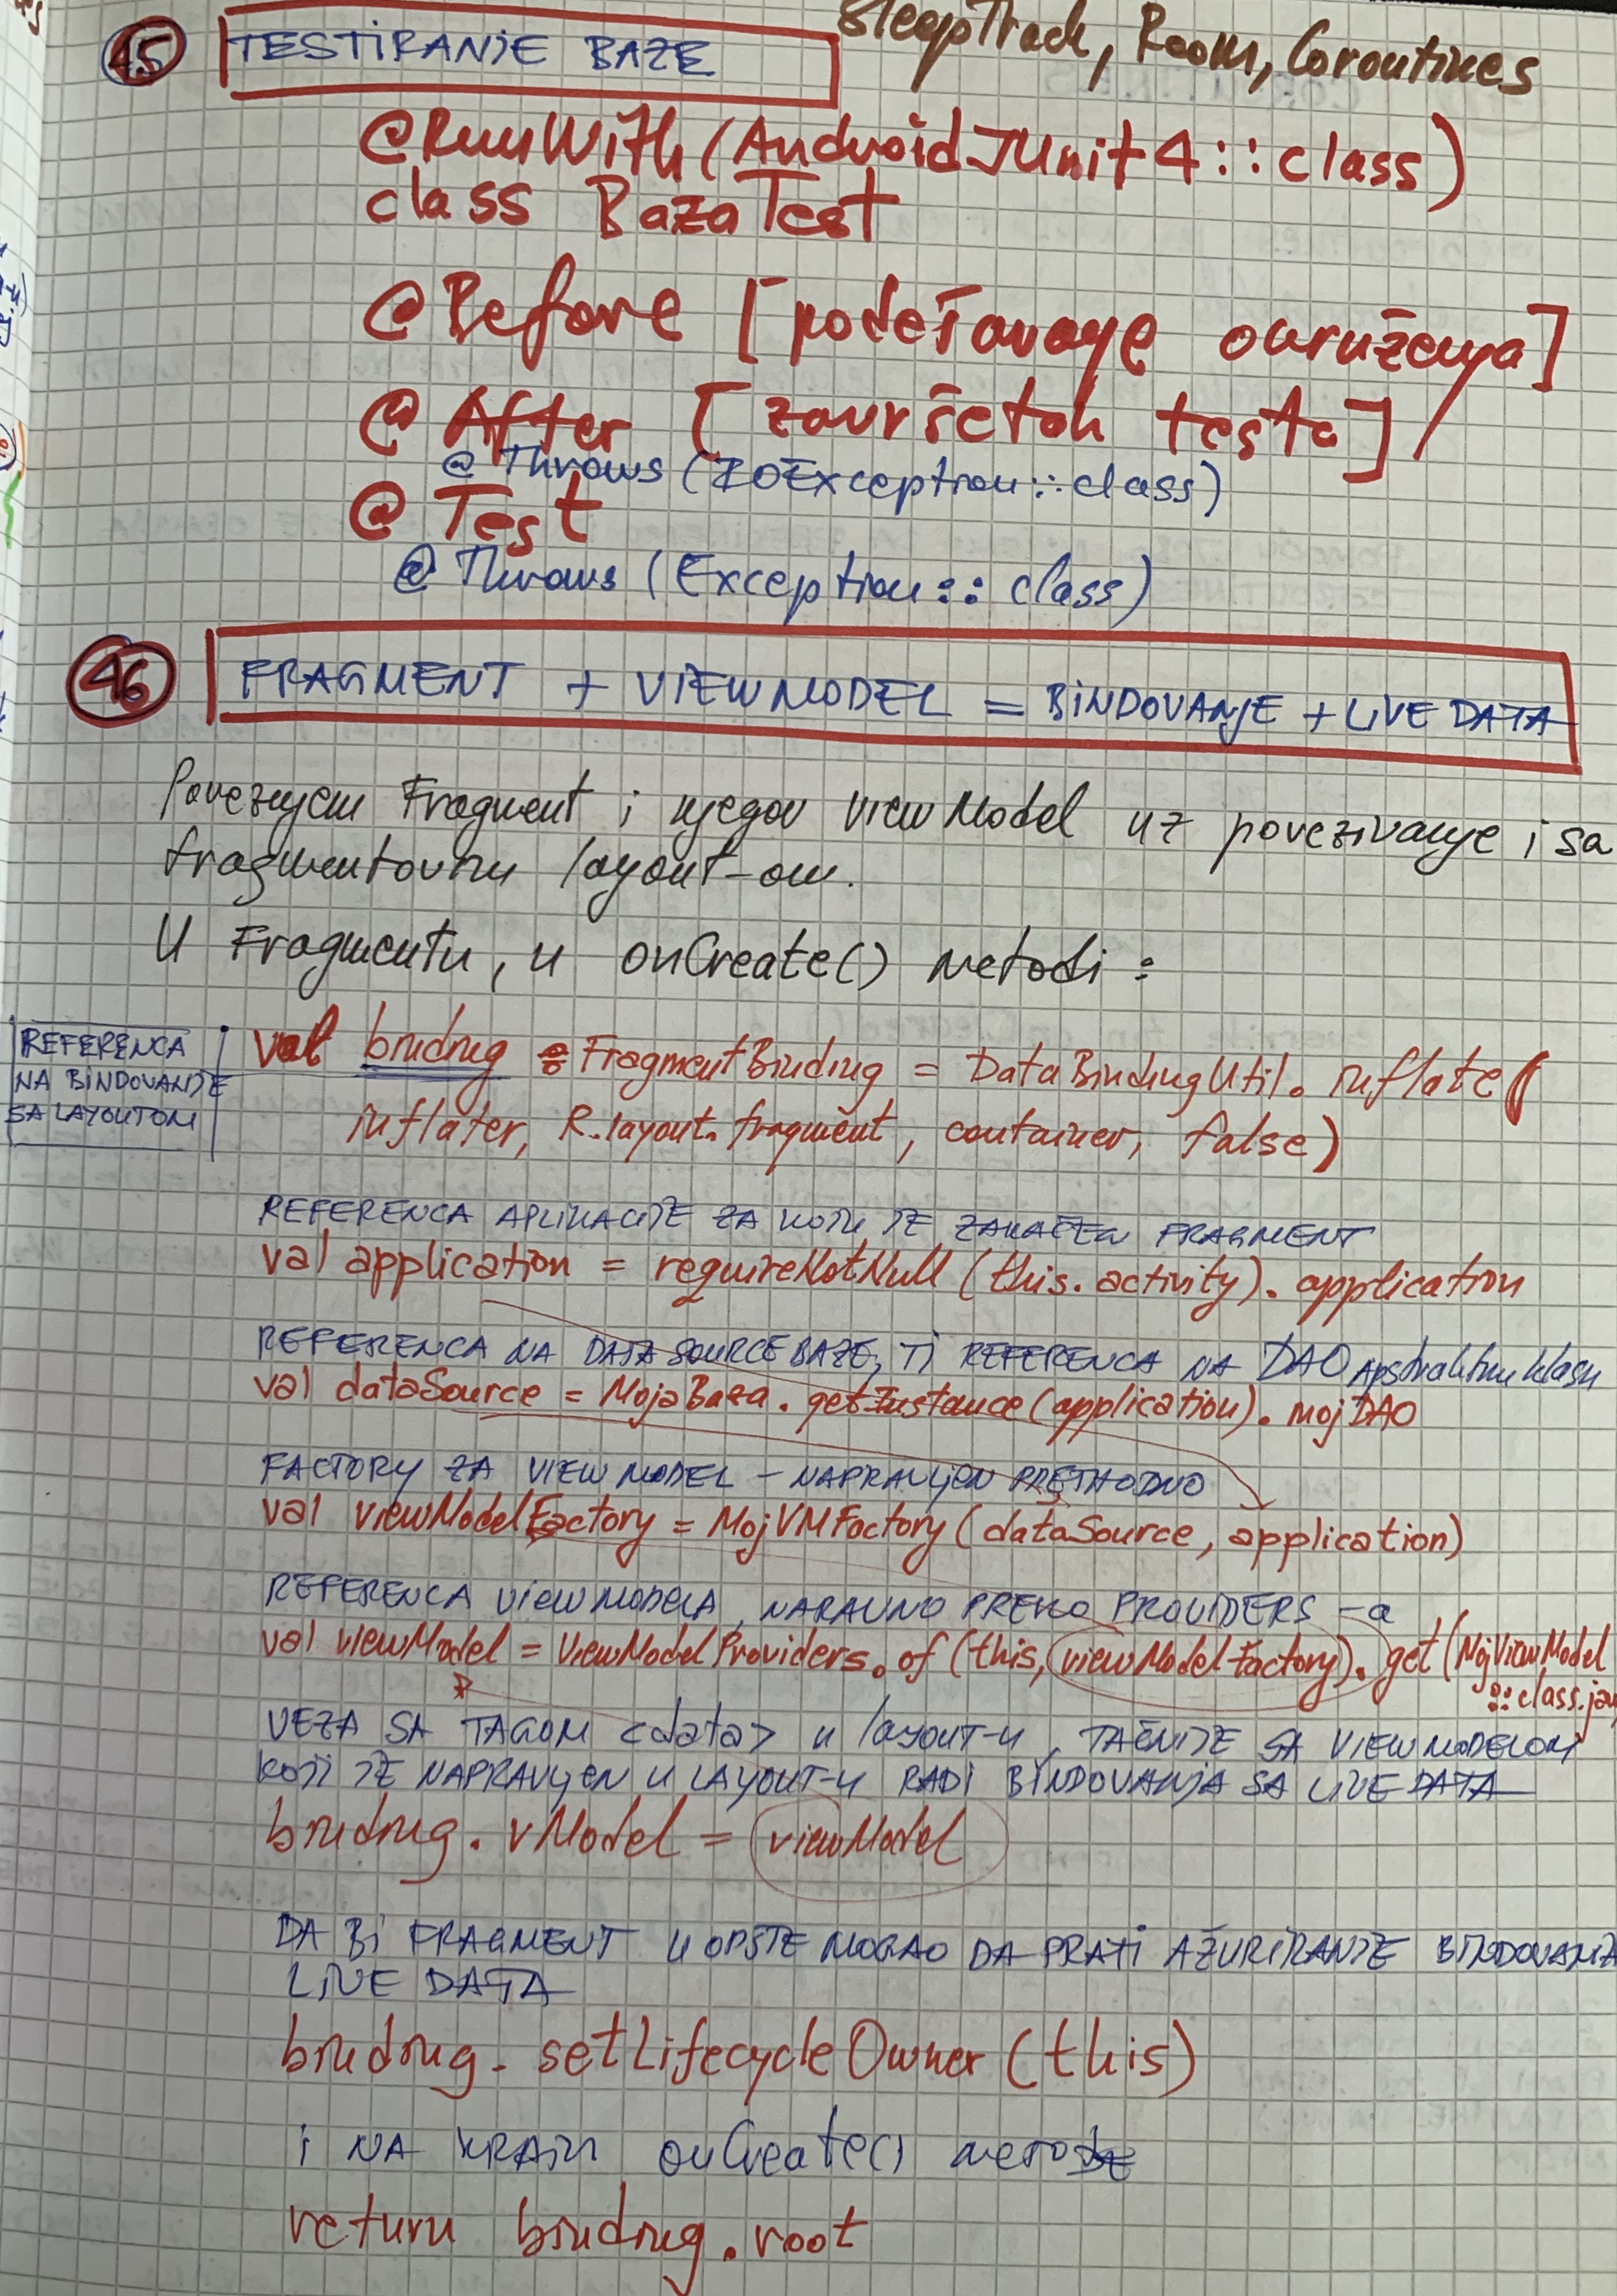 SleepTrack, Room, Coroutines
45 TESTIRANJE BAZE
@RunWith(AndroidJUnit4::class)
class BazaTest
@Before [podešavanje okruženja]
@After [završetak testa]
@Throws(IOException::class)
@Test
@Throws(Exception::class)
46 FRAGMENT + VIEWMODEL = BINDOVANJE + LIVE DATA
Povezujem Fragment i njegov ViewModel uz povezivanje i sa
fragmentovim layout-om.
U Fragmentu, u onCreate() metodi:
REFERENCA
NA BINDOVANJE
SA LAYOUTOM
val binding : FragmentBinding = DataBindingUtil.inflate(
inflater, R.layout.fragment, container, false)
REFERENCA APLIKACIJE ZA KOJU JE ZAKAČEN FRAGMENT
val application = requireNotNull(this.activity).application
REFERENCA NA DATA SOURCE BAZE, TJ REFERENCA NA DAO apstraktnu klasu
val dataSource = MojaBaza.getInstance(application).mojDAO
FACTORY ZA VIEW MODEL - NAPRAVLJEN PRETHODNO
val viewModelFactory = MojVMFactory(dataSource, application)
REFERENCA VIEWMODELA, NARAVNO PREKO PROVIDERS-a
val viewModel = ViewModelProviders.of(this, viewModelFactory).get(MojViewModel
::class.jav
VEZA SA TAGOM <data> u layout-u, TAČNIJE SA VIEWMODELOM
KOJI JE NAPRAVLJEN U LAYOUT-u RADI BINDOVANJA SA LIVE DATA
binding.vModel = viewModel
DA BI FRAGMENT UOPŠTE MOGAO DA PRATI AŽURIRANJE BINDOVANJA
LIVE DATA
binding.setLifecycleOwner(this)
i NA KRAJU onCreate() METODE
return binding.root